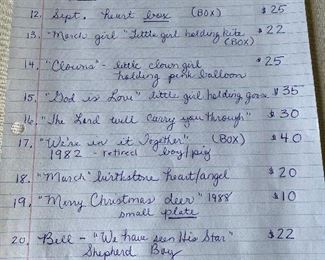 12. Sept. heart box (BOX) $25
13. "March girl" "Little girl holding kite $22
(BOX)
14. "Clowns" - little clown girl $25
holding pink balloon
15. "God is Love" little girl holding goose $35
16. "The Lord will carry you through" $30
17. "We're in it Together" (BOX) $40
1982 - retired boy/pig
18. "March" birthstone heart/angel $20
19. "Merry Christmas deer" 1988 $10
small plate
20. Bell - "We have seen His Star" $22
Shepherd Boy